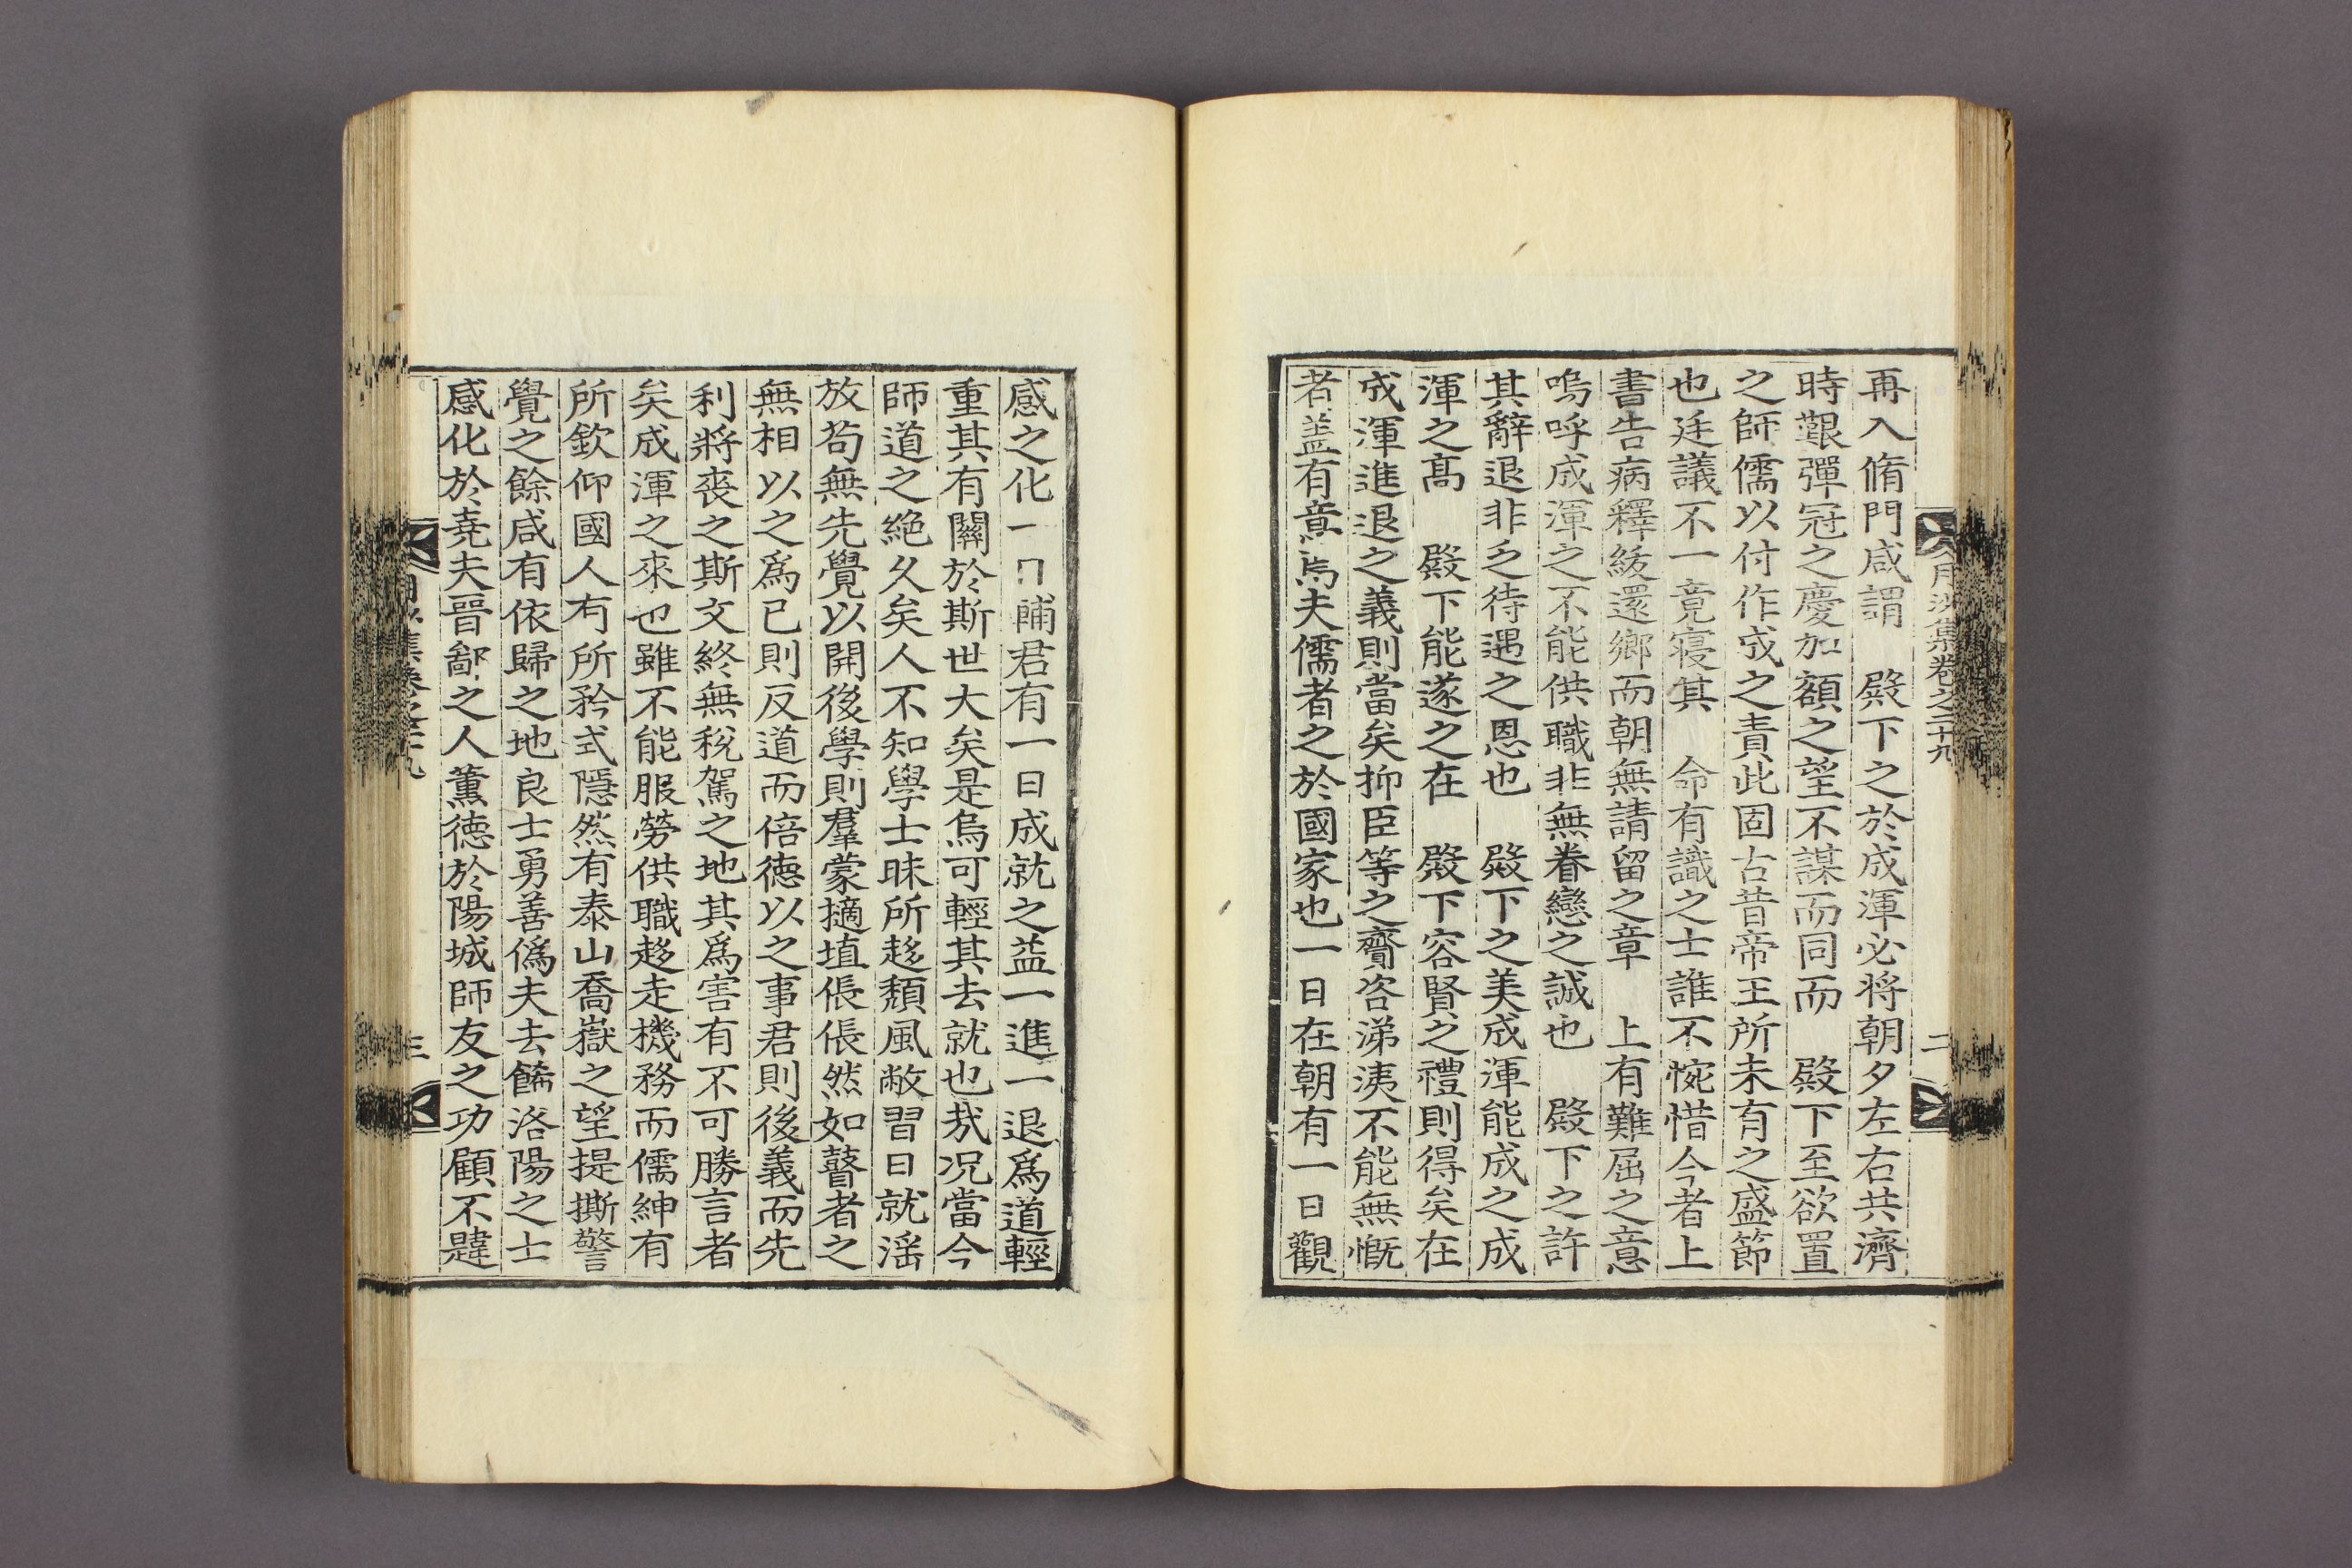 月沙集卷之二十九
二
再入脩門咸謂　殿下之於成渾必將朝夕左右共濟
時艱彈冠之慶加額之望不謀而同而　殿下至欲置
之師儒以付作成之責此固古昔帝王所未有之盛節
也廷議不一竟寢其　命有識之士誰不惋惜今者上
書告病釋紱還鄉而朝無請留之章　上有難屈之意
嗚呼成渾之不能供職非無眷戀之誠也　殿下之許
其辭退非乏待遇之恩也　殿下之美成渾能成之成
渾之高　殿下能遂之在　殿下容賢之禮則得矣在
成渾進退之義則當矣抑臣等之齎咨涕洟不能無慨
者盖有意焉夫儒者之於國家也一日在朝有一日觀
感之化一　輔君有一日成就之益一進一退爲道輕
重其有關於斯世大矣是烏可輕其去就也㢤况當今
師道之絶久矣人不知學士昧所趍頹風敝習日就滛
放苟無先覺以開後學則羣蒙擿埴倀倀然如瞽者之
無相以之爲已則反道而倍德以之事君則後義而先
利將丧之斯文終無稅駕之地其爲害有不可勝言者
矣成渾之來也雖不能服勞供職趍走機務而儒紳有
所欽仰國人有所矜式隱然有泰山喬嶽之望提撕警
覺之餘咸有依歸之地良士勇善僞夫去餙洛陽之士
感化於尭夫晉鄙之人薰德於陽城師友之功顧不韙
集卷之二十九
三